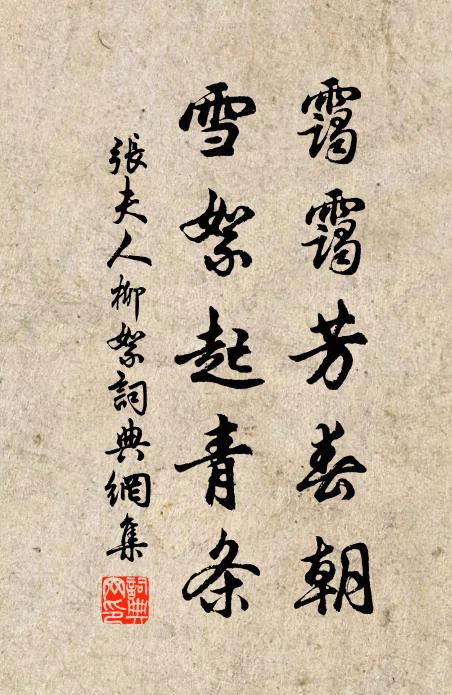 霭霭芳春朝
雪絮起青条
張夫人柳絮詞典網集
詞典網印